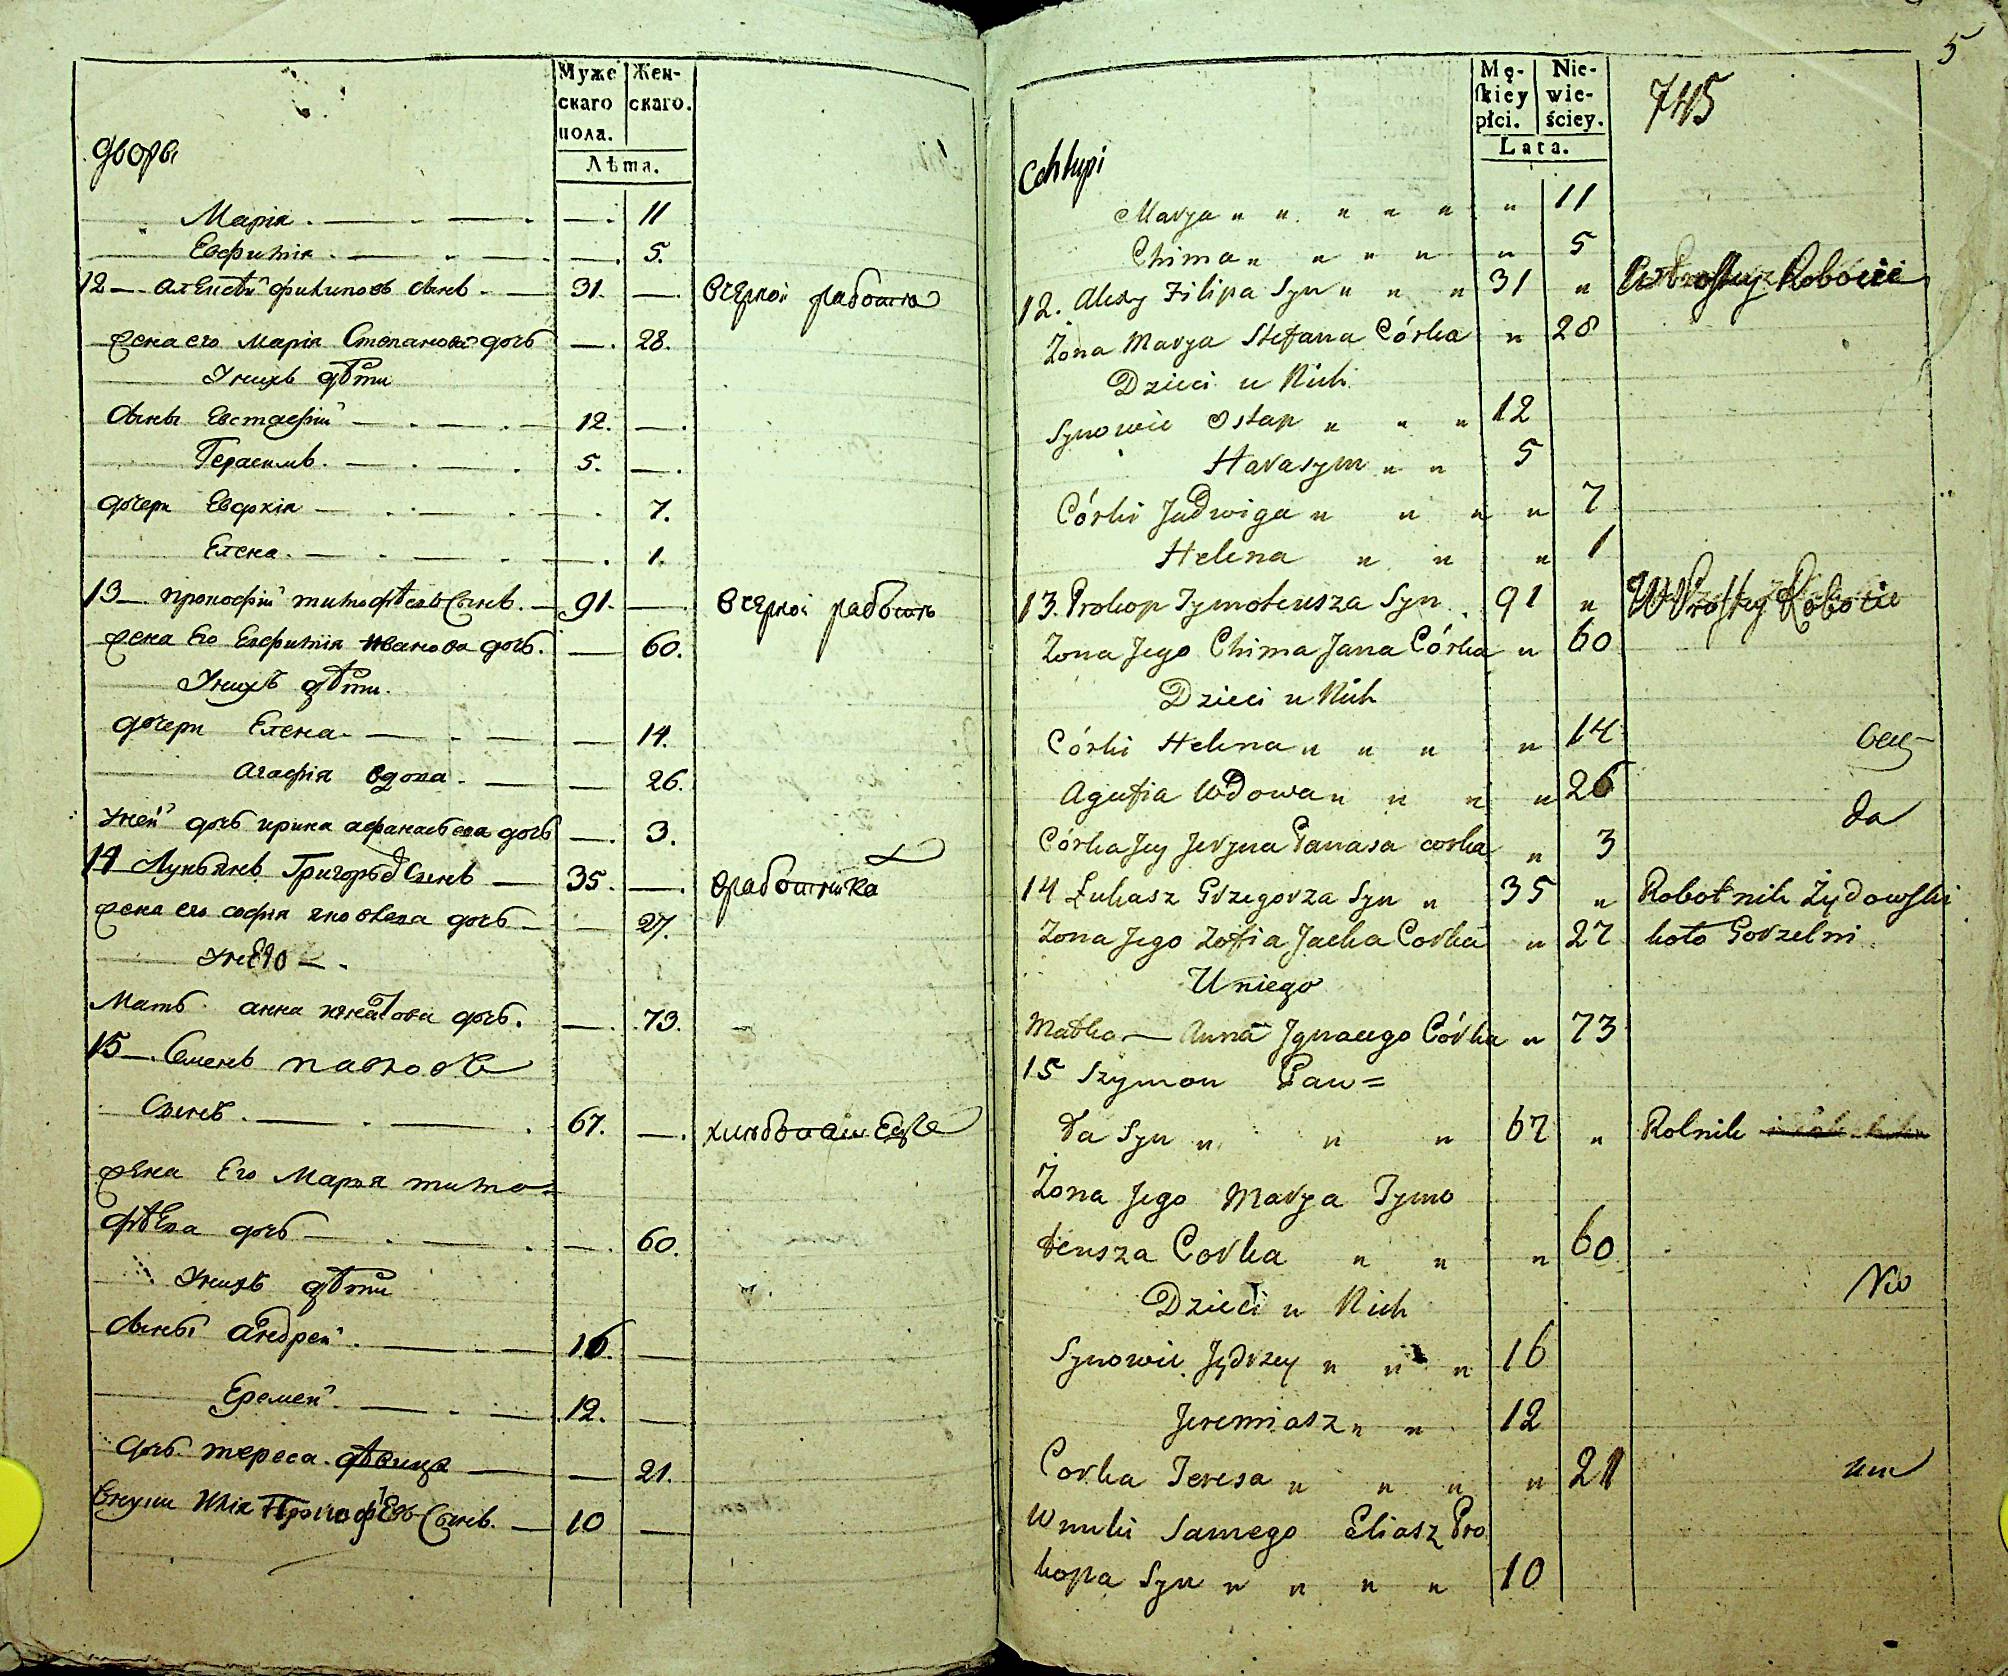 Муже Жен-
скаго скаго.
пола.
Лѣта.
дворы
Марія . — . — . — . 11
Евфимія . — . — . 5.
12 — Алексѣй филиповъ сынъ . — 31. — вчерной работѣ
жена его Марія Степанова дочь — . 28.
У нихъ дѣти
сыны Евстафій — . — . 12. — .
Герасимъ . — . — . 5. — .
дочери Евдокія — . — . 7.
Елена . — . — . 1.
13 — прокофій тимофѣевъ сынъ . — 91. — вчерной работѣ
жена Его Евфимія Иванова дочь . — 60.
У нихъ дѣти .
дочери Елена . — . — 14.
агафія вдова . — — 26.
У ней дочь ирина афанасьева дочь — . 3.
14 Лукьянъ Григорьевъ Сынъ — 35. — .
жена его софія яковлева дочь — 27.
У него — .
Мать анна игнатова дочь . — . 73.
15 — Семенъ павловъ
Сынъ . — . — . 67. — .
жена Его Марья тимо-
фѣева дочь — . — . 60.
У нихъ дѣти
сыны андрей . — 16. —
Еремей . — . — 12. —
дочь тереса дѣвица — — 21.
внуки Илія Прокофьевъ Сынъ . — 10 —
5
Mę- Nie-
skiey wie-
płci. ściey.
Lata.
745
Chłupi
Marya " " " " " " 11
Chima " " " " " 5
12. Alexy Filipa Syn " " " 31 " W Prostey Robocie
Żona Marya Stefana Córka " 28
Dzieci u Nich
Synowie Ostap " " " 12
Harasym " " 5
Córki Jadwiga " " " " 7
Helena " " " 1
13. Prokop Tymoteusza Syn . 91 " W Prostey Robocie
Żona Jego Chima Jana Córka " 60
Dzieci u Nich
Córki Helena " " " " 14
Agafia Wdowa " " " " 26
da
Córka Jey Jeryna Panasa corka " 3
14 Łukasz Grzegorza Syn " 35 " Robotnik Żydowski
Żona Jego Zofia Jacka Corka " 27 koło Gorzelni
U niego
Matka — Anna Jgnacego Córka " 73
15 Szymon Paw=
ła Syn " " " 67 " Rolnik
Żona Jego Marya Tymo
teusza Corka " " " 60
Dzieci u Nich
Synowie Jędrzey " " " 16
Jeremiasz " " 12
Corka Teresa " " " " 21
Wnuki Samego Eliasz Pro
kopa Syn " " " " 10